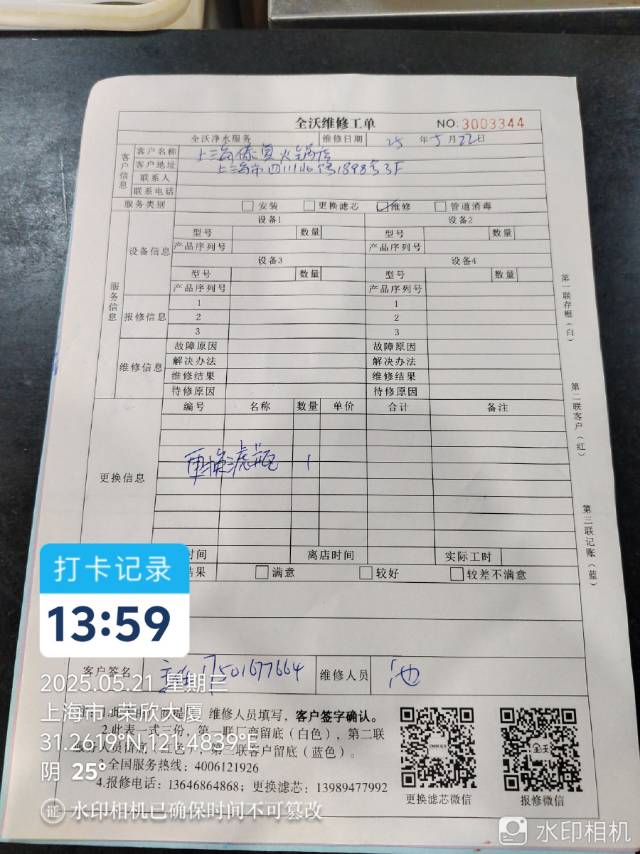 全沃维修工单
NO: 3003344
全沃净水服务 维修日期 25 年 5 月 22 日
客户信息
客户名称 上海 火锅店
客户地址 上海市四川北路1898号3F
联系人
联系电话
服务类别 安装 更换滤芯 维修 管道消毒
服务信息
设备信息
设备1 设备2
型号 数量 型号 数量
产品序列号 产品序列号
设备3 设备4
型号 数量 型号 数量
产品序列号 产品序列号
报修信息
1 1
2 2
3 3
维修信息
故障原因 故障原因
解决办法 解决办法
维修结果 维修结果
待修原因 待修原因
更换信息
编号 名称 数量 单价 合计 备注
更换滤瓶 1
时间 离店时间 实际工时
结果 满意 较好 较差不满意
客户签名 17501677664 维修人员 池
维修人员填写，客户签字确认。
2.此表一式三份，第一联厂商留底（白色），第二联
第三联客户留底（蓝色）。
3.全国服务热线：4006121926
4.报修电话：13646864868；更换滤芯：13989477992
更换滤芯微信 报修微信
第一联存根（白）
第二联客户（红）
第三联记账（蓝）
打卡记录
13:59
2025.05.21 星期三
上海市·荣欣大厦
31.2610°N,121.4839°E
阴 25°
证 水印相机已确保时间不可篡改
水印相机